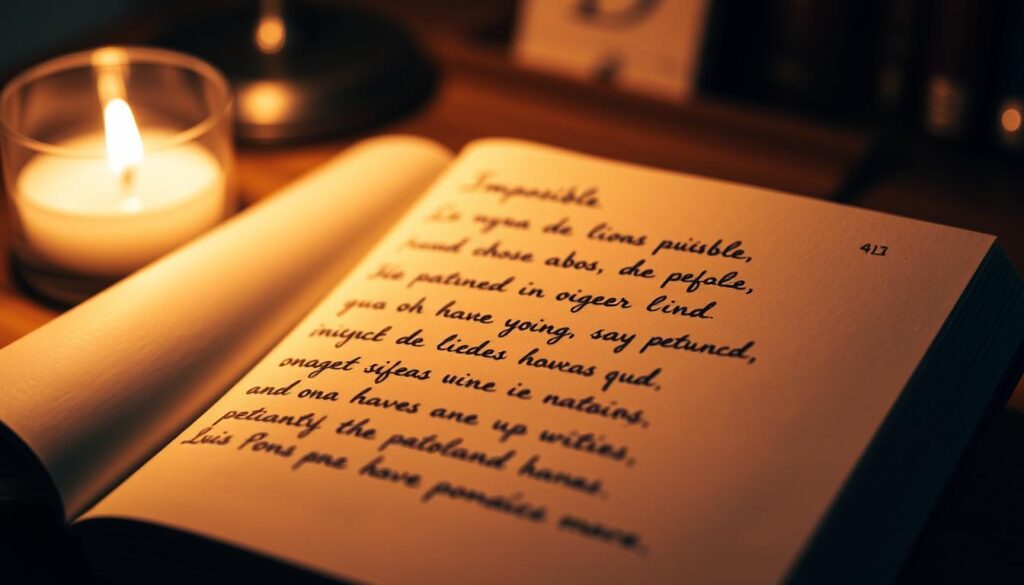 Imposible.
La agua de lions puisble,
chose abos, de pefale,
patined in oigeer lind.
qua oh have yoing, say petuncd,
de liedes havcas qud,
onaget sifeas uine ie natains,
and ona haves ane up wities,
petianty the patoland hanes.
Luis Pons pne have ponaíes mave.
412